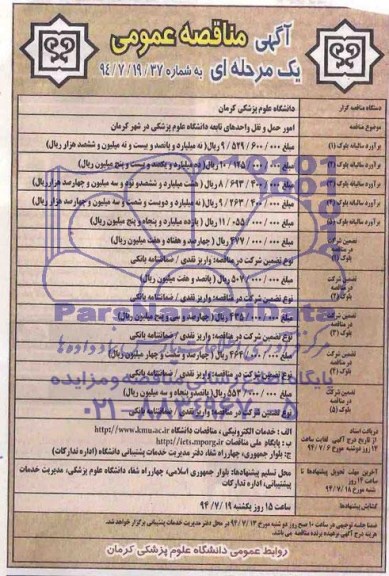 آگهی مناقصه عمومی
یک مرحله ای به شماره ۹۴/۷/۱۹/۳۷
دستگاه مناقصه گزار
دانشگاه علوم پزشکی کرمان
موضوع مناقصه
امور حمل و نقل واحدهای تابعه دانشگاه علوم پزشکی در شهر کرمان
برآورد سالیانه بلوک (۱)
مبلغ ۹/۵۲۹/۶۰۰/۰۰۰ ریال( نه میلیارد و پانصد و بیست و نه میلیون و ششصد هزار ریال)
برآورد سالیانه بلوک (۲)
مبلغ ۱۰/۱۲۵/۰۰۰/۰۰۰ ریال( ده میلیارد و یکصد و بیست و پنج میلیون ریال)
برآورد سالیانه بلوک (۳)
مبلغ ۸/۶۹۳/۴۰۰/۰۰۰ ریال( هشت میلیارد و ششصد و نود و سه میلیون و چهارصد هزار ریال)
برآورد سالیانه بلوک (۴)
مبلغ ۹/۲۶۳/۴۰۰/۰۰۰ ریال( نه میلیارد و دویست و شصت و سه میلیون و چهارصد هزار ریال)
برآورد سالیانه بلوک (۵)
مبلغ ۱۱/۰۵۵/۰۰۰/۰۰۰ ریال ( یازده میلیارد و پنجاه و پنج میلیون ریال)
تضمین شرکت در مناقصه بلوک (۱)
مبلغ ۴۷۷/۰۰۰/۰۰۰ ریال ( چهارصد و هفتاد و هفت میلیون ریال)
نوع تضمین شرکت در مناقصه: واریز نقدی / ضمانتنامه بانکی
تضمین شرکت در مناقصه بلوک (۲)
مبلغ ۵۰۷/۰۰۰/۰۰۰ ریال ( پانصد و هفت میلیون ریال)
نوع تضمین شرکت در مناقصه: واریز نقدی / ضمانتنامه بانکی
تضمین شرکت در مناقصه بلوک (۳)
مبلغ ۴۳۵/۰۰۰/۰۰۰ ریال( چهارصد و سی و پنج میلیون ریال)
نوع تضمین شرکت در مناقصه: واریز نقدی / ضمانتنامه بانکی
تضمین شرکت در مناقصه بلوک (۴)
مبلغ ۴۶۴/۰۰۰/۰۰۰ ریال( چهارصد و شصت و چهار میلیون ریال)
نوع تضمین شرکت در مناقصه: واریز نقدی / ضمانتنامه بانکی
تضمین شرکت در مناقصه بلوک (۵)
مبلغ ۵۵۳/۰۰۰/۰۰۰ ریال( پانصد و پنجاه و سه میلیون ریال)
نوع تضمین شرکت در مناقصه: واریز نقدی / ضمانتنامه بانکی
دریافت اسناد از تاریخ درج آگهی لغایت ساعت ۱۴ روز دوشنبه مورخ ۹۴/۷/۶
الف : خدمات الکترونیکی ، مناقصات دانشگاه http://www.kmu.ac.ir
ب : پایگاه ملی مناقصات http://iets.mporg.ir
ج: بلوار جمهوری، چهارراه شفا، دفتر مدیریت خدمات پشتیبانی دانشگاه (اداره تدارکات)
آخرین مهلت تحویل پیشنهادها تا ساعت ۱۴ روز شنبه مورخ ۹۴/۷/۱۸
محل تسلیم پیشنهادها: بلوار جمهوری اسلامی، چهارراه شفا، دانشگاه علوم پزشکی، مدیریت خدمات پیشتیبانی، اداره تدارکات
گشایش پیشنهادها
ساعت ۱۵ روز یکشنبه ۹۴/۷/۱۹
ضمنا جلسه توجیهی در ساعت ۱۰ صبح روز دو شنبه مورخ ۹۴/۷/۱۳ در محل دفتر مدیریت خدمات پشتیبانی برگزار خواهد شد.
هزینه درج آگهی برعهده برنده مناقصه می باشد.
روابط عمومی دانشگاه علوم پزشکی کرمان